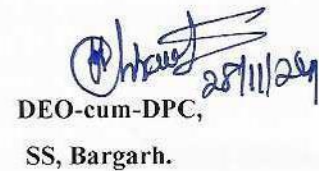 28/11/24
DEO-cum-DPC,
SS, Bargarh.